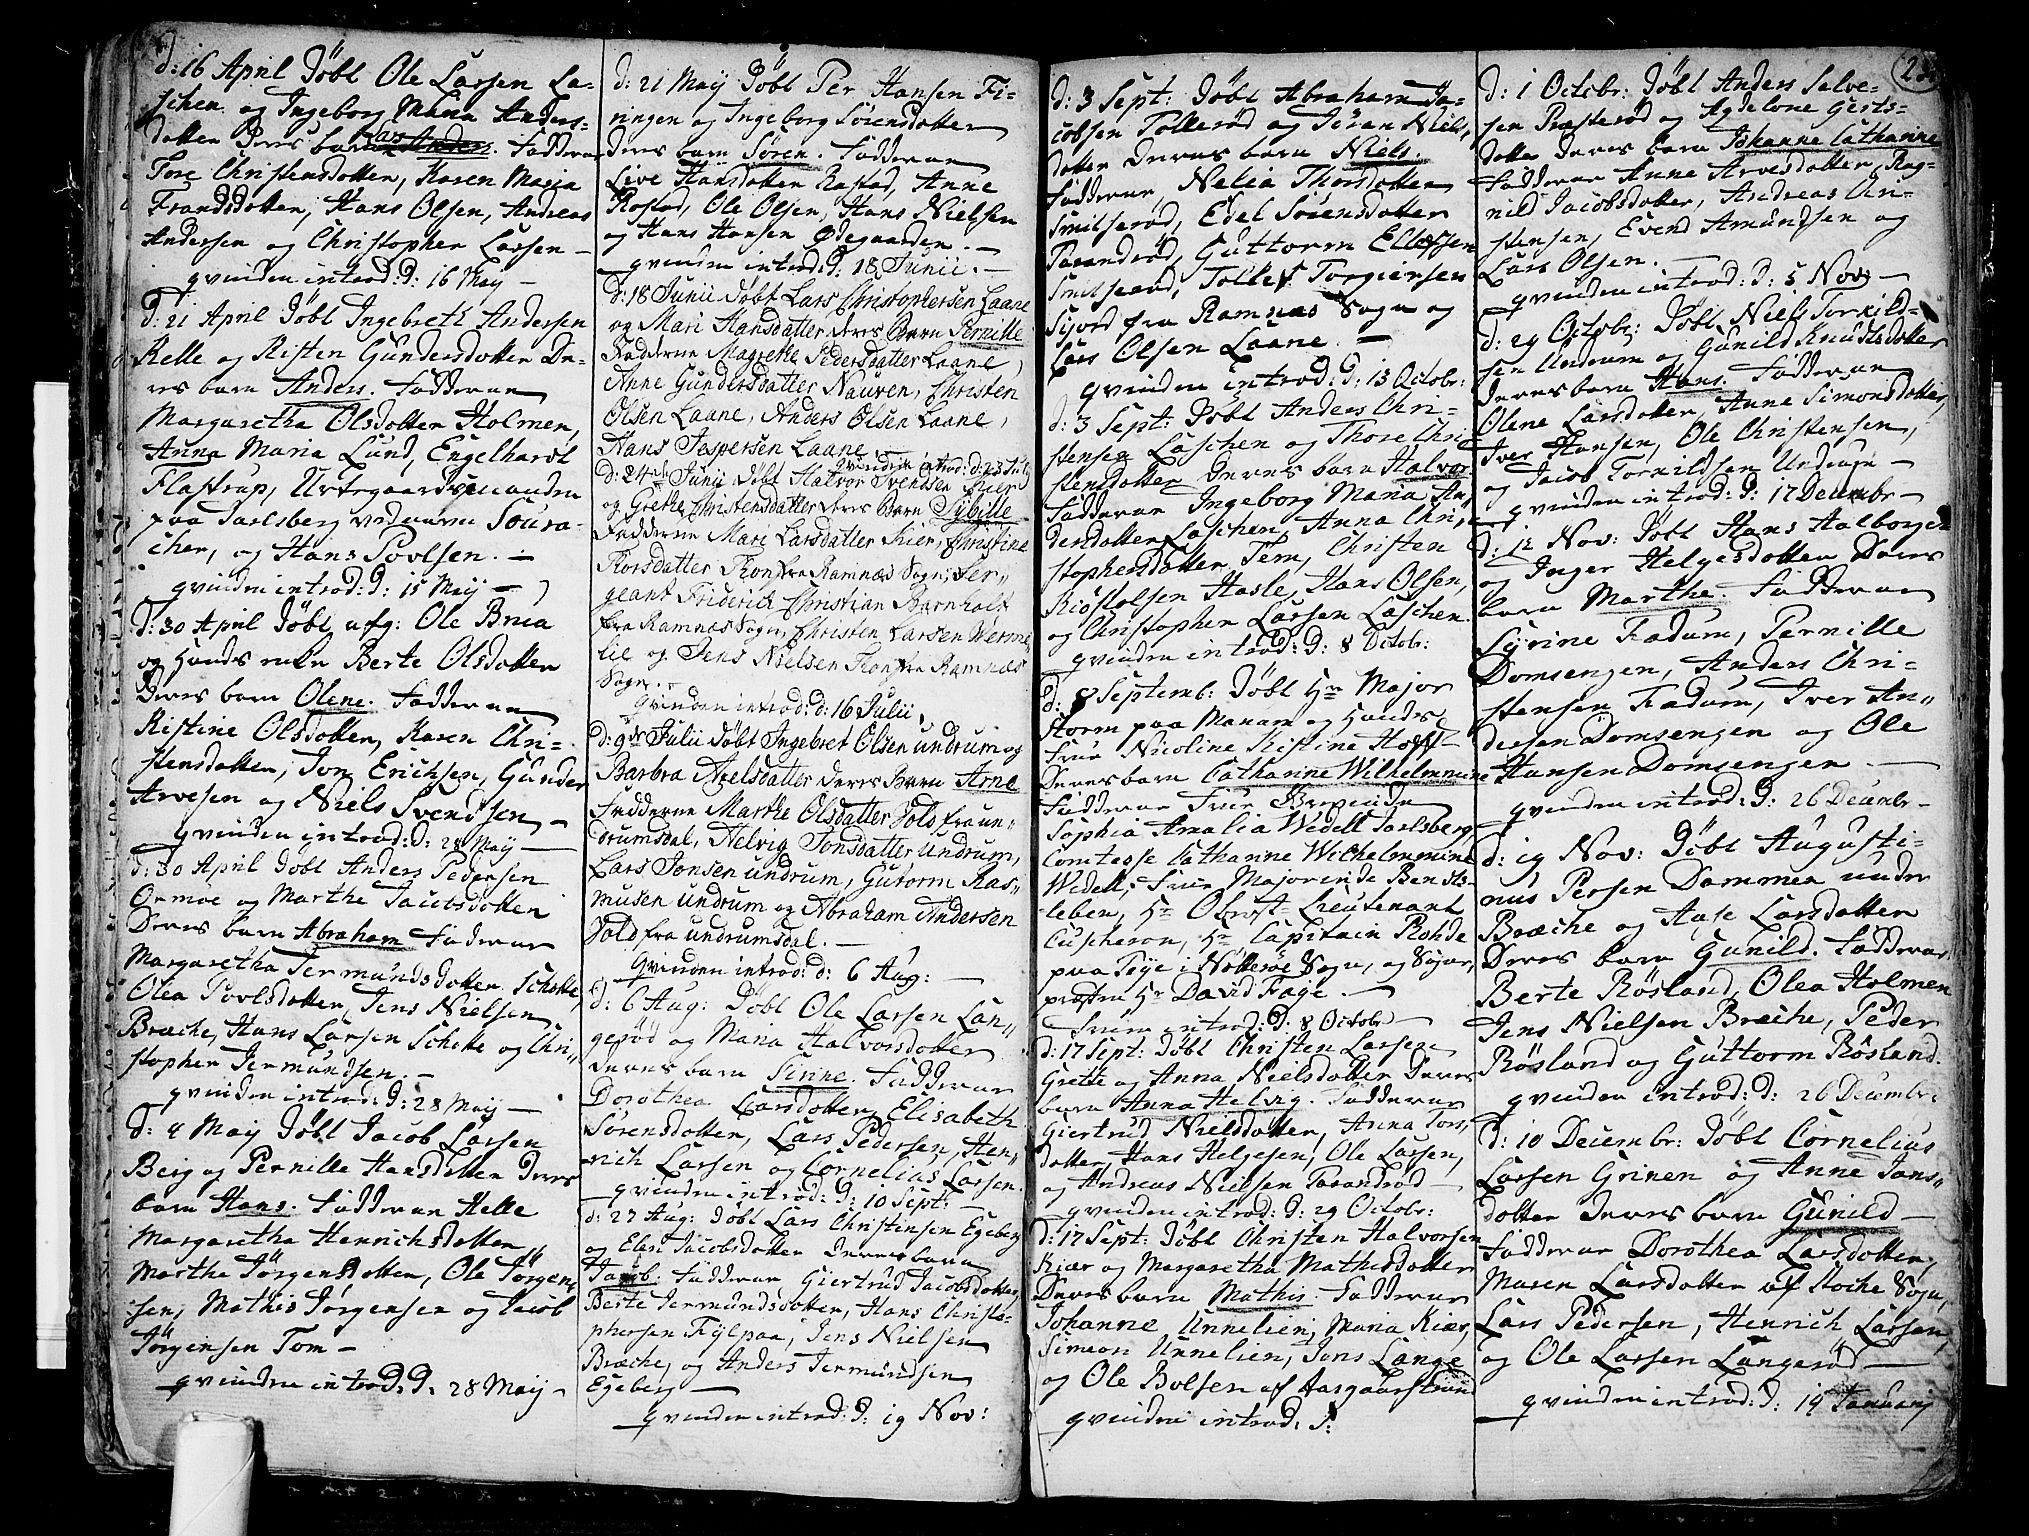 d: 16 April Döbt Ole Larsen La-
schen og Ingeborg Maria Anders-
dotter Deres barn Lars Anders. Fadderne
Tore Christensdotter, Karen Maria
Frandsdotter, Hans Olsen, Andreas
Andersen og Christopher Larsen -
qvinden introd: d: 16 May -
d: 21 April Döbt Ingebreth Andersen
Relle og Kisten Gundersdotter De-
res barn Anders. Fadderne
Margaretha Olsdotter Holmen,
Anna Maria Lund, Engelhardt
Flastrup, Urtegaards
paa Jarlsberg
og Hans Povlsen. -
qvinden introd: d: 15 May -
d: 30 April Döbt afg: Ole Brua
og Hands enke Berte Olsdotter
Deres barn Olene. Fadderne
Kistine Olsdotter, Karen Chri-
stensdotter, Jon Erichsen, Gunder
Arvesen og Niels Svendsen -
qvinden introd: d: 28 May -
d: 30 April Döbt Anders Pedersen
Ormoe og Marthe Jacobsdotter
Deres barn Abraham Fadderne
Margaretha Jermundsdotter Schette,
Olea Povlsdotter, Jens Nielsen
Bræche, Hans Larsen Schette og Chri-
stopher Jermundsen. -
qvinden introd: d: 28 May -
d: 4 May Döbt Jacob Larsen
Berg og Pernille Hansdotter Deres
barn Hans. Fadderne Helle
Margaretha Henrichsdotter
Marthe Jörgensdotter, Ole Jörgen-
sen, Mathis Jörgensen og Jacob
Jörgensen Tom -
qvinden introd: d: 28 May -
d: 21 May Döbt Per Hansen Fi-
ringen og Ingeborg Sörensdotter
Deres barn Sören. Fadderne
Live Hansdotter Rastad, Anne
Rostad, Ole Olsen, Hans Nielsen
og Hans Hansen Ödegaarden. -
qvinden introd: d: 18 Junii. -
d: 18 Junii Döbt Lars Christophersen Laane
og Mari Hansdatter deres Barn Pernille
Fadderne Magrethe Pedersdatter Laane,
Anne Gundersdatter Nauren, Christen
Olsen Laane, Anders Olsen Laane,
Hans Jespersen Laane.
qvinden introd: d: 23 Juli
d: 24de Junii Döbt Halvor Svendsen Kier
og Grethe Christensdatter deres Barn Sybille
Fadderne Mari Larsdatter Kier, Christine
Thorsdatter Thon fra Ramnæs Sogn, Ser-
geant Friderich Christian Barnholt
fra Ramnæs Sogn, Christen Larsen Werme
lie og Jens Nielsen Thon fra Ramnæs
Sogn. -
Qvinden introd: d: 16 Julii.
d: 9de Julii Döbt Ingebret Olsen Undrum og
Barbra Axelsdatter deres Barn Arne
Fadderne Marthe Olsdatter Vold fra un-
drumsdal, Helvig Jonsdatter Undrum,
Lars Jonsen Undrum, Gutorm Ras-
musen Undrum og Abraham Andersen
Vold fra undrumsdal. -
Qvinden introd: d: 6 Aug: -
d: 6 Aug: Döbt Ole Larsen Lan-
geröd og Maria Halvorsdotter
Deres barn Sirine. Fadderne
Dorothea Larsdotter, Elisabeth
Sörensdotter, Lars Pedersen, Hen-
rich Larsen og Cornelias Larsen.
qvinden introd: d: 10 Sept: -
d: 27 Aug: Döbt Lars Christensen Egeberg
og Else Jacobsdotter Deres barn
Jacob. Fadderne Giertrud Jacobsdotter,
Berte Jermundsdotter, Hans Christo-
phersen Fylpaa, Jens Nielsen
Bræche, og Anders Jermundsen
Egeberg -
qvinden introd: d: 19 Nov:
d: 3 Sept: Döbt Abraham Ja-
cobsen Tolleröd og Jöran Niels-
dotter Deres barn Niels.
Fadderne, Nelia Thorsdotter
Smitseröd, Edel Sörensdotter
Taranderöd, Guttorm Ellefsen
Smitseröd, Tollef Torgiersen
Fiord fra Ramnæs Sogn og
Lars Olsen Laane. -
qvinden introd: d: 13 Octobr:
d: 3 Sept: Döbt Anders Chri-
stensen Laschen og Thore Chri-
stensdotter Deres barn Halvor.
Fadderne Ingeborg Maria An-
dersdotter Laschen, Anna Chri-
stophersdotter Tem, Christen
Kiöstolsen Hasle, Hans Olsen,
og Christopher Larsen Laschen.
qvinden introd: d: 8 Octobr:
d: 8 Septemb: Döbt Hr Major
Storm paa Manam og Hands
Frue Nicoline Kistine Hoff
Deres barn Catharine Wilhelmmine
Fadderne Frue Grevinde
Sophia Amalia Wedell Jarlsberg,
Comtesse Catharine Wilhelmmine
Wedell, Frue Majorinde Bendts-
leben, Hr Obrist-Lieutenant
Cuscheron, Hr Capitain Rohde
paa Teye i Nötteröe Sogn, og Sogne-
præsten Hr David Faye. -
Fruen introd: d: 8 Octobr -
d: 17 Sept: Döbt Christen Larsen
Grette og Anna Nielsdotter Deres
barn Anna Helvig. Fadderne
Giertrud Nielsdotter, Anna Tors-
dotter, Hans Helgesen, Ole Larsen,
og Andreas Nielsen Taranderöd -
qvinden introd: d: 29 Octobr:
d: 17 Sept: Döbt Christen Halvorsen
Kiær og Margaretha Mathisdotter
Deres barn Mathis. Fadderne
Johanne Unnelien, Maria Kiær,
Simeon Unnelien, Jans Lange
og Ole Bolsen af Aasgaardstrand
qvinden introd: d:
d: 1 Octobr: Döbt Anders Salve-
sen Præsteröd og Agdelone Gerts-
dotter Deres barn Johanne Catharine
Fadderne Anne Arvesdotter, Rag-
nild Jacobsdotter, Andreas Chri-
stensen, Evend Amundsen og
Lars Olsen. -
qvinden introd: d: 5 Nov -
d: 29 Octobr: Döbt Niels Torkild-
sen Undrum og Gunild Knudsdotter
Deres barn Hans. Fadderne
Olene Larsdotter, Anne Simonsdotter,
Iver Hansen, Ole Christensen,
og Jacob Torkildsen Undrum -
qvinden introd: d: 17 Decembr -
d: 12 Nov: Döbt Hans Aalborgen
og Inger Helgesdotter Deres
barn Marthe. Fadderne
Syrine Fadum, Pernille
Domsengen, Anders Chri-
stensen Fadum, Iver An-
dersen Domsengen og Ole
Hansen Domsengen -
qvinden introd: d: 26 Decembr -
d: 19 Nov: Döbt Augusti-
nus Persen Dammen under
Bræche og Aase Larsdotter
Deres barn Gunild. Fadderne
Berte Rösland, Olea Holmen
Jens Nielsen Bræche, Peder
Rösland og Guttorm Rösland.
qvinden introd: d: 26 Decembr:
d: 10 Decembr: Döbt Cornelius
Larsen Grinen og Anne Jans-
dotter Deres barn Gunild -
Fadderne Dorothea Larsdotter,
Maren Larsdotter af Stoche Sogn,
Lars Pedersen, Henrich Larsen,
og Ole Larsen Langeröd -
qvinden introd: d: 19 Januarj